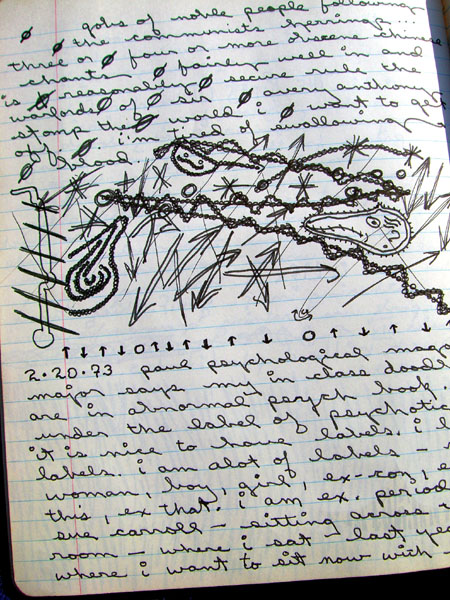 gobs of noble people following
the communists herrings...
three or four or more disease chinese
chants fairey well in and
is reasonably secure rule the
warlords of sir avery anthony
stomp the world i want to get
off i'm tired of swallowing
blood...
2.20.73 paul psychological
major says my in class
are in abnormal psych book.
under the label of psychotic
it is nice to have labels. i
labels. i am alot of labels –
woman, boy, girl, ex-con,
this, ex that. i am ex. period
sue carroll – sitting across
room – where i sat – last
where i want to sit now with –